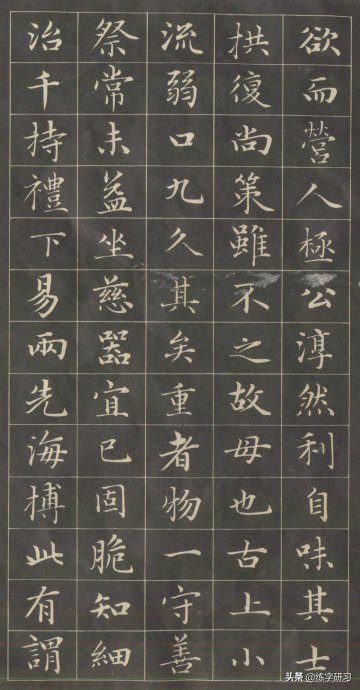 欲而營人極公淳然利自味其士
拱復尚策雖不之故母也古上小
流弱口九久其矣重者物一守善
祭常未益坐慈器宜已固脆知細
治千持禮下易兩先海摶此有謂
头条 @练字研习